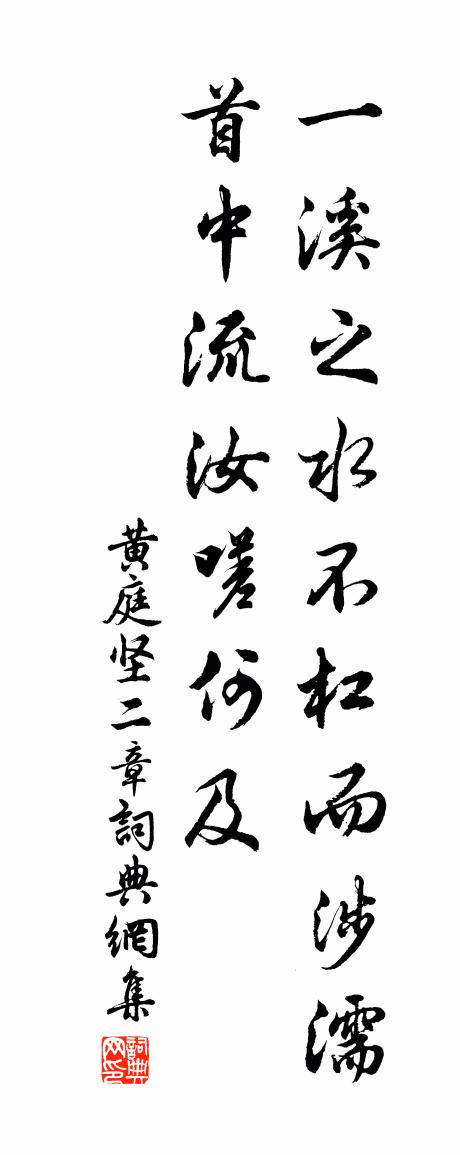 一溪之水不杠而涉濡
首中流汝嗟何及
黄庭坚二章詞典網集
詞典网印